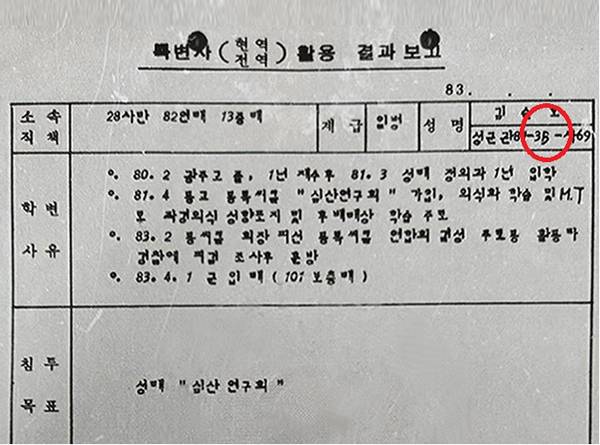 특변자 (현역 전역) 활용 결과보고
83. . .
소속 직책 28사단 82연대 13중대 계급 일병 성명 김
성균관 81-3B-사69
학변 사유
○. 80.2 광주고 졸, 1년 재수후 81.3 성대 정외과 1년 입학
○. 81.4 동교 불록써클 "심산연구회" 가입, 의식화 학습 및 M.T
로 좌경의식 성향포지 및 후배대상 학습 주도
○. 83.2 동써클 회장 피선 불록써클 연합회 결성 주도등 활동타
경찰에 피검 조사후 훈방
○. 83.4.1 군입대 (101보충대)
침투 목표
성대 "심산연구회"